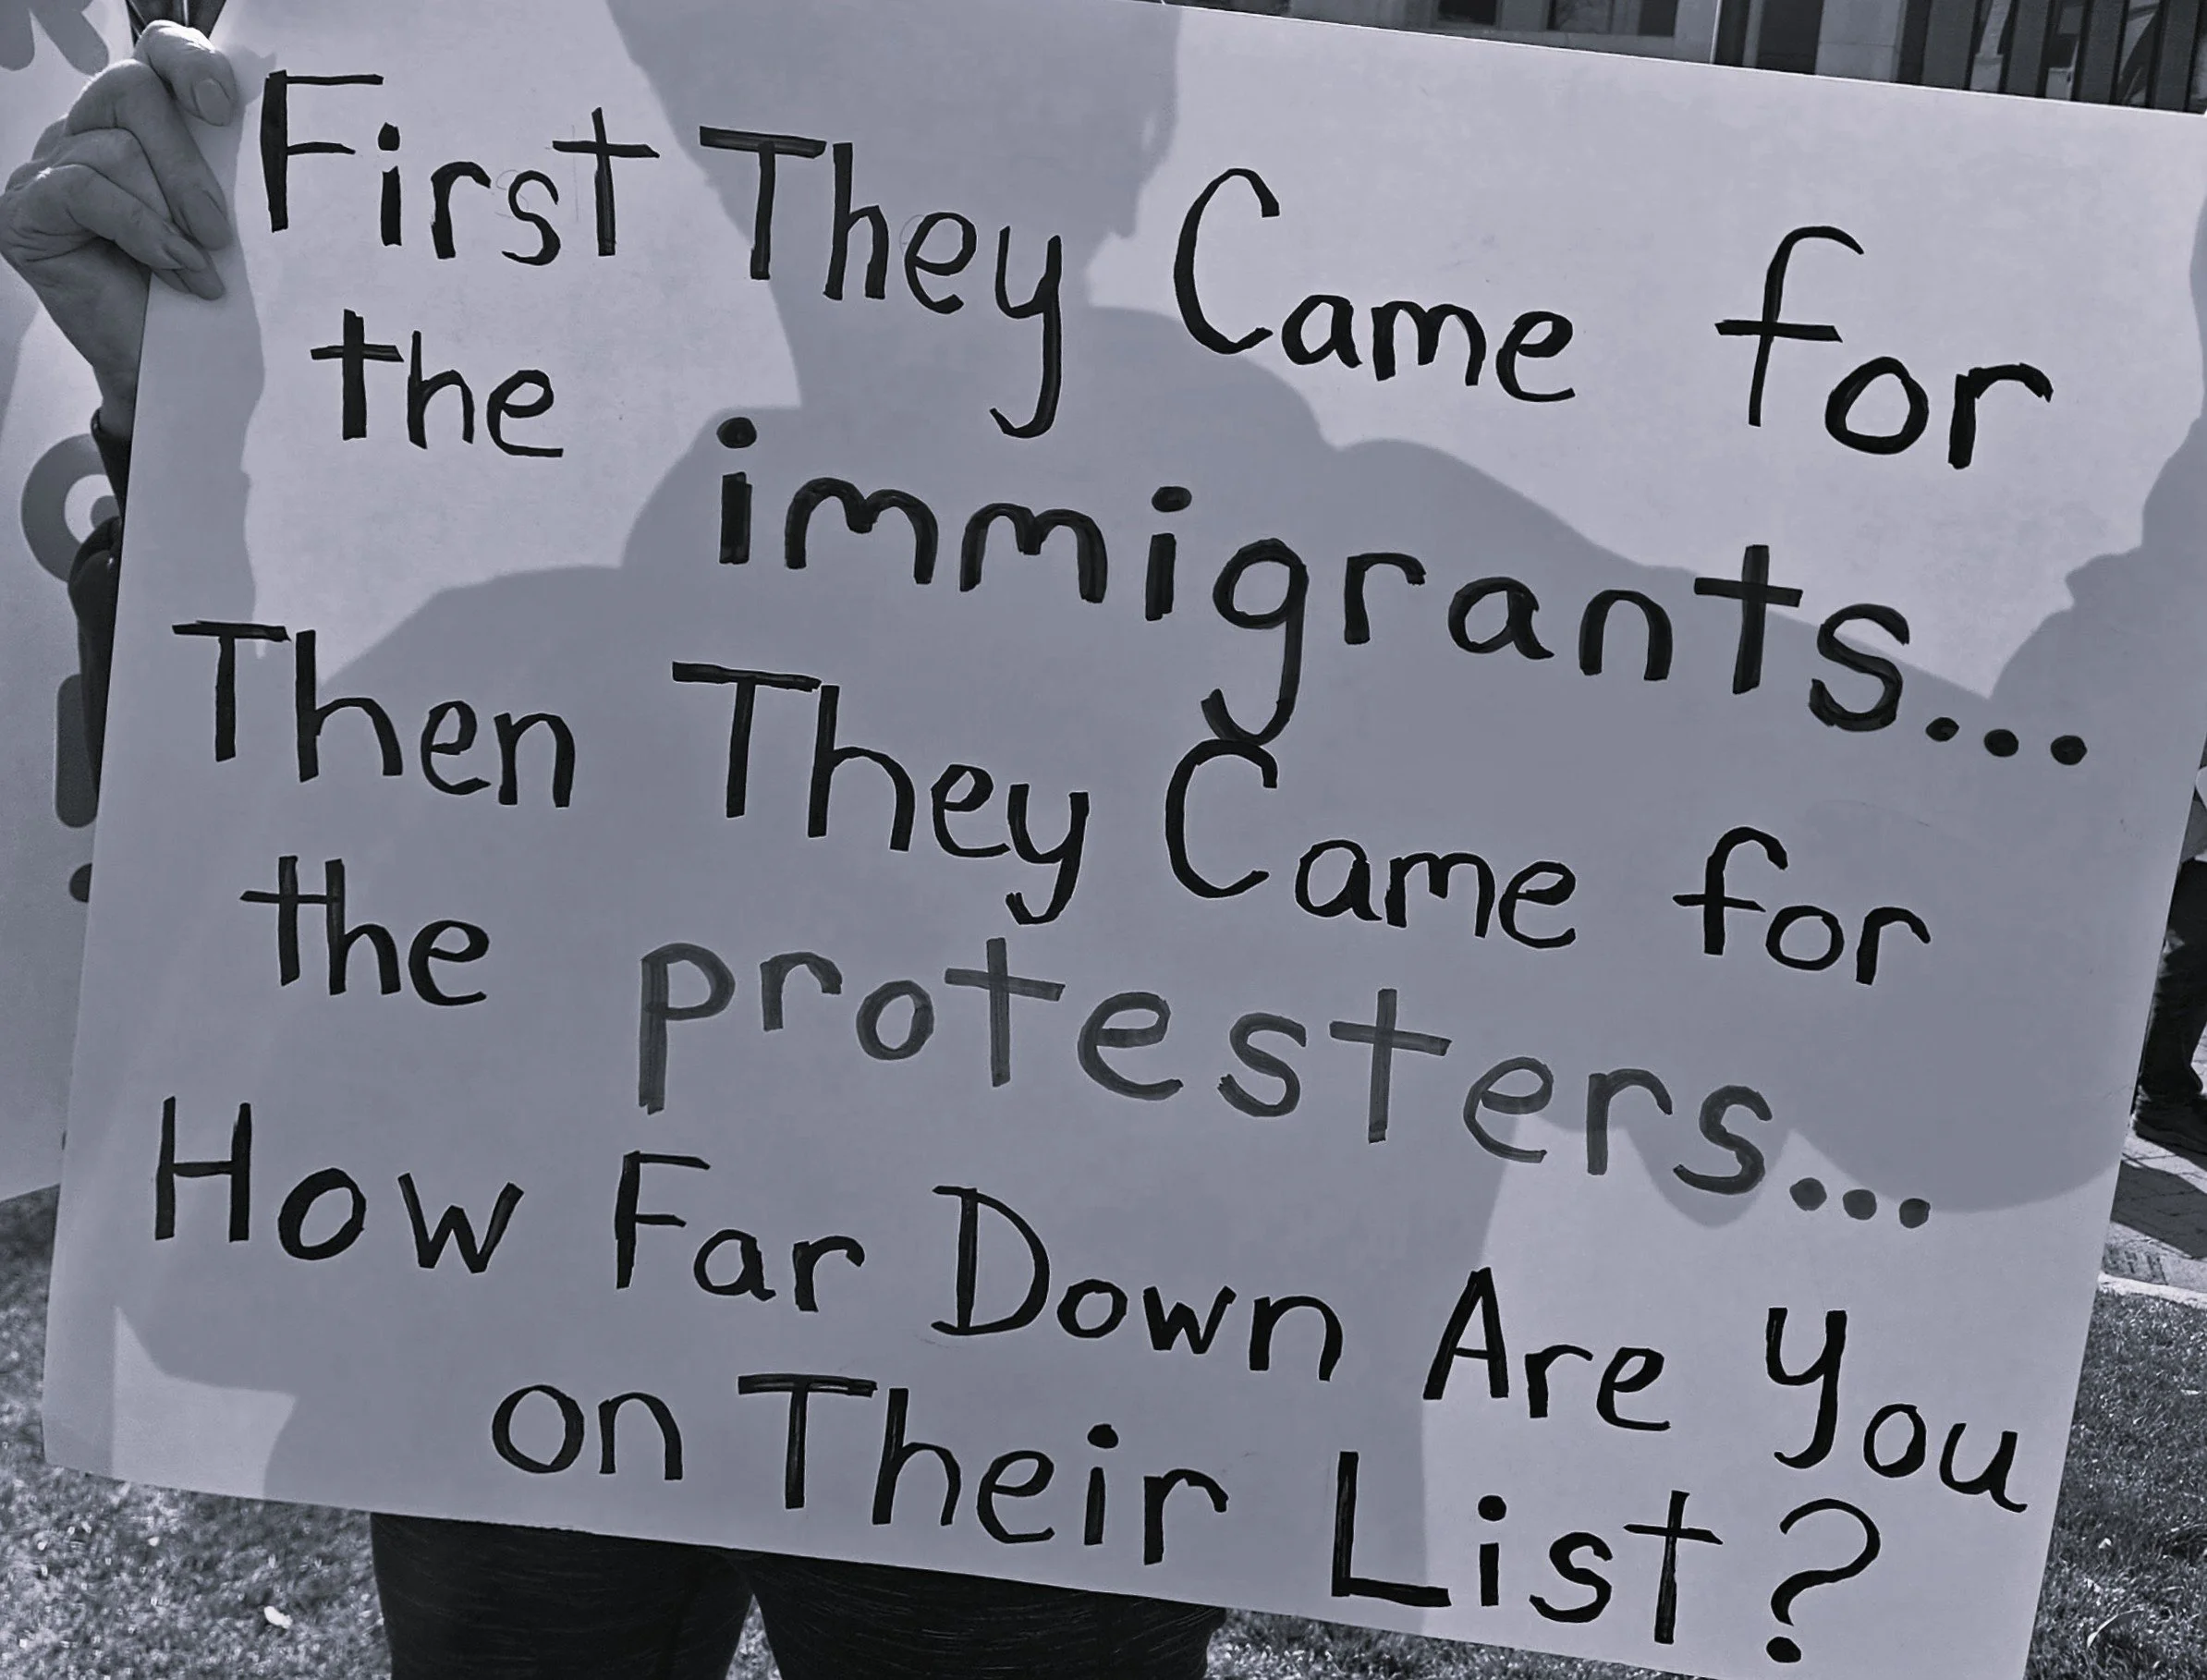 First They Came for
the
immigrants...
Then They Came for
the protesters...
How Far Down Are You
on Their List?